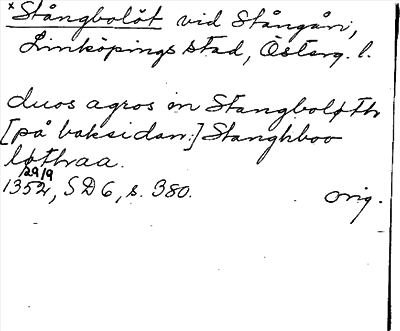 *Stångbolöt vid Stångån,
Linköpings stad, Österg. l.
duos agros in Stangboløth
[på baksidan:] Stanghboo
løthraa.
29/9
1352, SD 6, s. 380. orig.